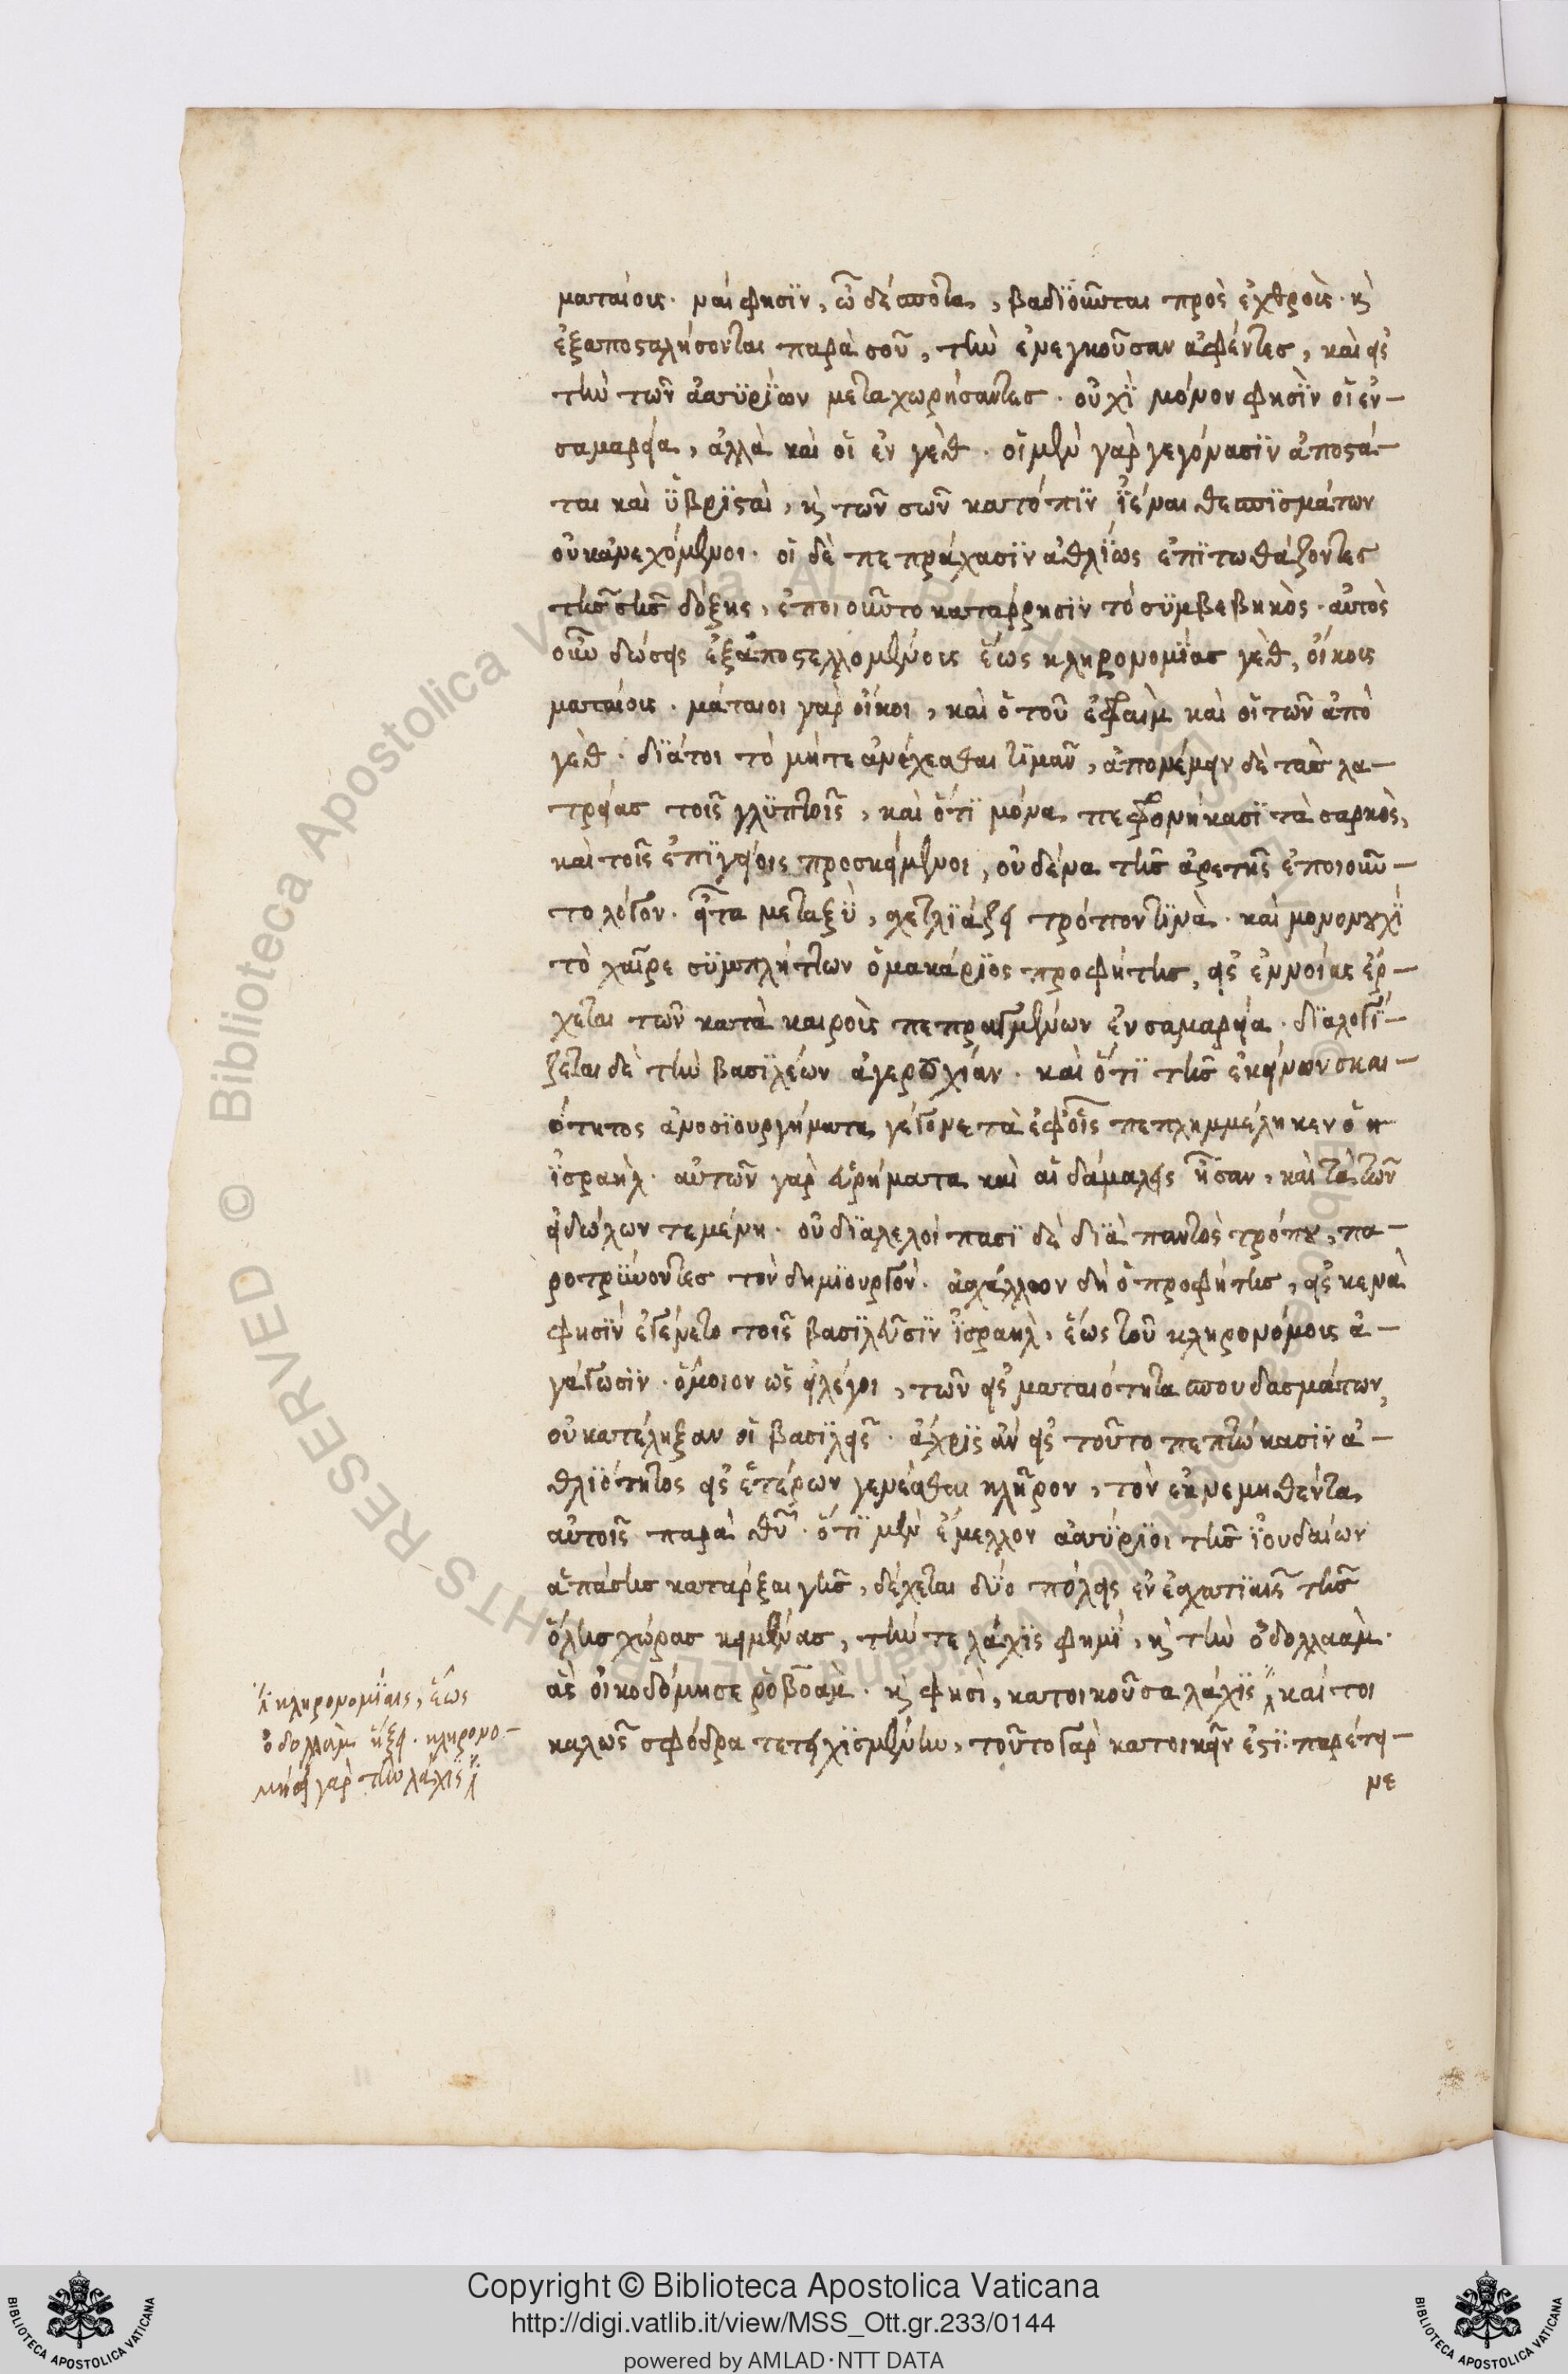 ματαίοις· ναί φησϊν, ὦ δέσποτα, βαδϊοῦνται πρὸς ἐχθροὺς· καὶ
ἐξαποσταλήσονται παρὰ σοῦ, τὴν ἐνεγκοῦσαν ἀφέντες, καὶ εἰς
τὴν τῶν ἀσσϋρϊων μεταχωρήσαντες· οὐχϊ μόνον φησῒν οἱ ἐν
σαμαρεία, ἀλλὰ καὶ οἱ ἐν γὲθ· οἱ μὲν γὰρ γεγόνασϊν ἀποστά-
ται καὶ ϋβρϊσταὶ, καὶ τῶν σῶν κατόπϊν ϊέναι θεσπϊσμάτων
οὐκ ἀνεχόμενοι· οἱ δὲ πεπράχασϊν ἀθλϊως ἐπϊτωθάζοντες
τῆς σῆς δόξης, ἐποιοῦντο κατάρρησϊν τὸ σϋμβεβηκὸς· αὐτὸς
οὖν δώσεις ἐξαποστελλομένους ἕως κληρονομϊας γὲθ, οἴκους
ματαίους· μάταιοι γὰρ οἶκοι, καὶ ὁ τοῦ ἐφραὶμ καὶ οἱ τῶν ἀπὸ
γὲθ· δϊάτοι τὸ μήτε ἀνέχεσθαι τϊμᾶν, ἀπονέμειν δὲ τὰς λα-
τρείας τοῖς γλϋπτοῖς, καὶ ὅτϊ μόνα πεφρονήκασϊ τὰ σαρκὸς,
καὶ τοῖς ἐπϊγείοις προσκείμενοι, οὐδένα τῆς ἀρετῆς ἐποιοῦν-
το λόγον· εἶτα μεταξϋ, σχετλϊάζει τρόπον τϊνὰ· καὶ μονονουχϊ
τὸ χαῖρε σϋμπλήττων ὁ μακάρϊος προφήτης, εἰς ἐννοίας ἔρ-
χεται τῶν κατὰ καιροὺς πεπραγμένων ἐν σαμαρεία· δϊαλογϊ-
ζεται δὲ τὴν βασϊλέων ἀγερωχίαν· καὶ ὅτϊ τῆς ἐκείνων σκαι-
ότητος ἀνοσϊουργήματα γέγονε τὰ ἐφ' οἷς πεπλημμέληκεν ὁ
ϊσραὴλ· αὐτῶν γὰρ εὑρήματα καὶ αἱ δάμαλεις ἦσαν, καὶ τὰ τῶν
εἰδώλων τεμένη· οὐ δϊαλελοίπασϊ δὲ δϊὰ παντὸς τρόπου, πα-
ροτρϋνοντες τὸν δημϊουργὸν· ἀσχάλλων δὴ ὁ προφήτης, εἰς κενὰ
φησϊν ἐγένετο τοῖς βασϊλεῦσϊν ϊσραὴλ, ἕως τοῦ κληρονόμους ἀ-
γάγωσϊν· ὅμοιον ὡς εἰ λέγοι, τῶν εἰς ματαιότητα σπουδασμάτων,
οὐ κατέληξαν οἱ βασϊλεῖς· ἄχρϊς ἂν εἰς τοῦτο πεπτώκασϊν ἀ-
θλϊότητος εἰς ἑτέρων γενέσθαι κλῆρον, τὸν ἐκνεμηθέντα
αὐτοῖς παρὰ θῦ· ὅτϊ μὲν ἔμελλον ἀσσϋρϊοι τῆς ϊουδαίων
ἁπάσης κατάρξαι γῆς, δέχεται δϋο πόλεις ἐν ἐσχατϊαῖς τῆς
ὅλης χώρας κειμένας, τήν τε λάχϊς φημϊ, καὶ τὴν ὀδολλαὰμ·
ἃς οἰκοδόμησε ῥοβοὰμ· καὶ φησὶ, κατοικοῦσα λάχϊς καίτοι
καλῶς σφόδρα τετειχϊσμένην, τοῦτο γὰρ κατοικεῖν ἐστϊ· παρέτει-
νε
κληρονομϊαις, ἕως
ὀδολλὰμ ἥξει· κληρονο-
μήσει γὰρ τὴν λάχις
Copyright © Biblioteca Apostolica Vaticana
http://digi.vatlib.it/view/MSS_Ott.gr.233/0144
powered by AMLAD·NTT DATA